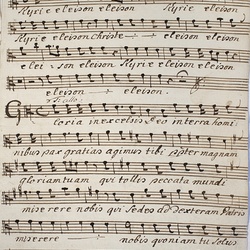 Kyrie eleison eleison Kyrie eleison eleison
Kyrie eleison christe eleison Kyrie eleison
elei son eleison Kyrie eleison eleison
eleison eleison.
Gloria in excelsis Deo in terra homi:
nibus pax gratias agimus tibi propter magnam
gloriam tuam qui tollis peccata mundi
miserere nobis qui sedes ad dexteram Patris
miserere nobis quoniam tu solus